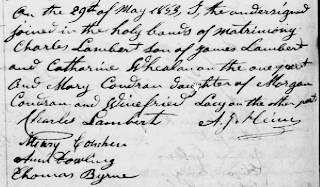 On the 29th of May 1853, I, the undersigned
joined in the holy bands of matrimony
Charles Lambert son of James Lambert
and Catharine Whealan on the one part
And Mary Condran daughter of Morgan
Condran and Winefried Lacy on the other part
Charles Lambert
Henry
Ann Dowling
Thomas Byrne